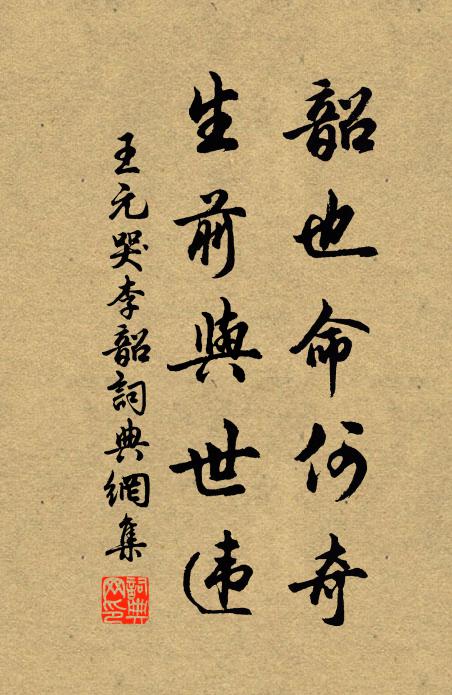 韶也命何奇
生前與世违
王元哭李韶詞典網集
詞典网印